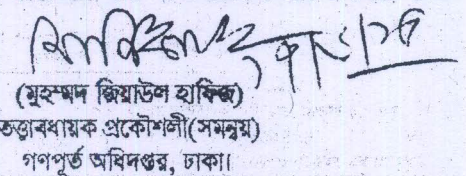 (মুহম্মদ জিয়াউল হাফিজ)
তত্ত্বাবধায়ক প্রকৌশলী(সমন্বয়)
গণপূর্ত অধিদপ্তর, ঢাকা।